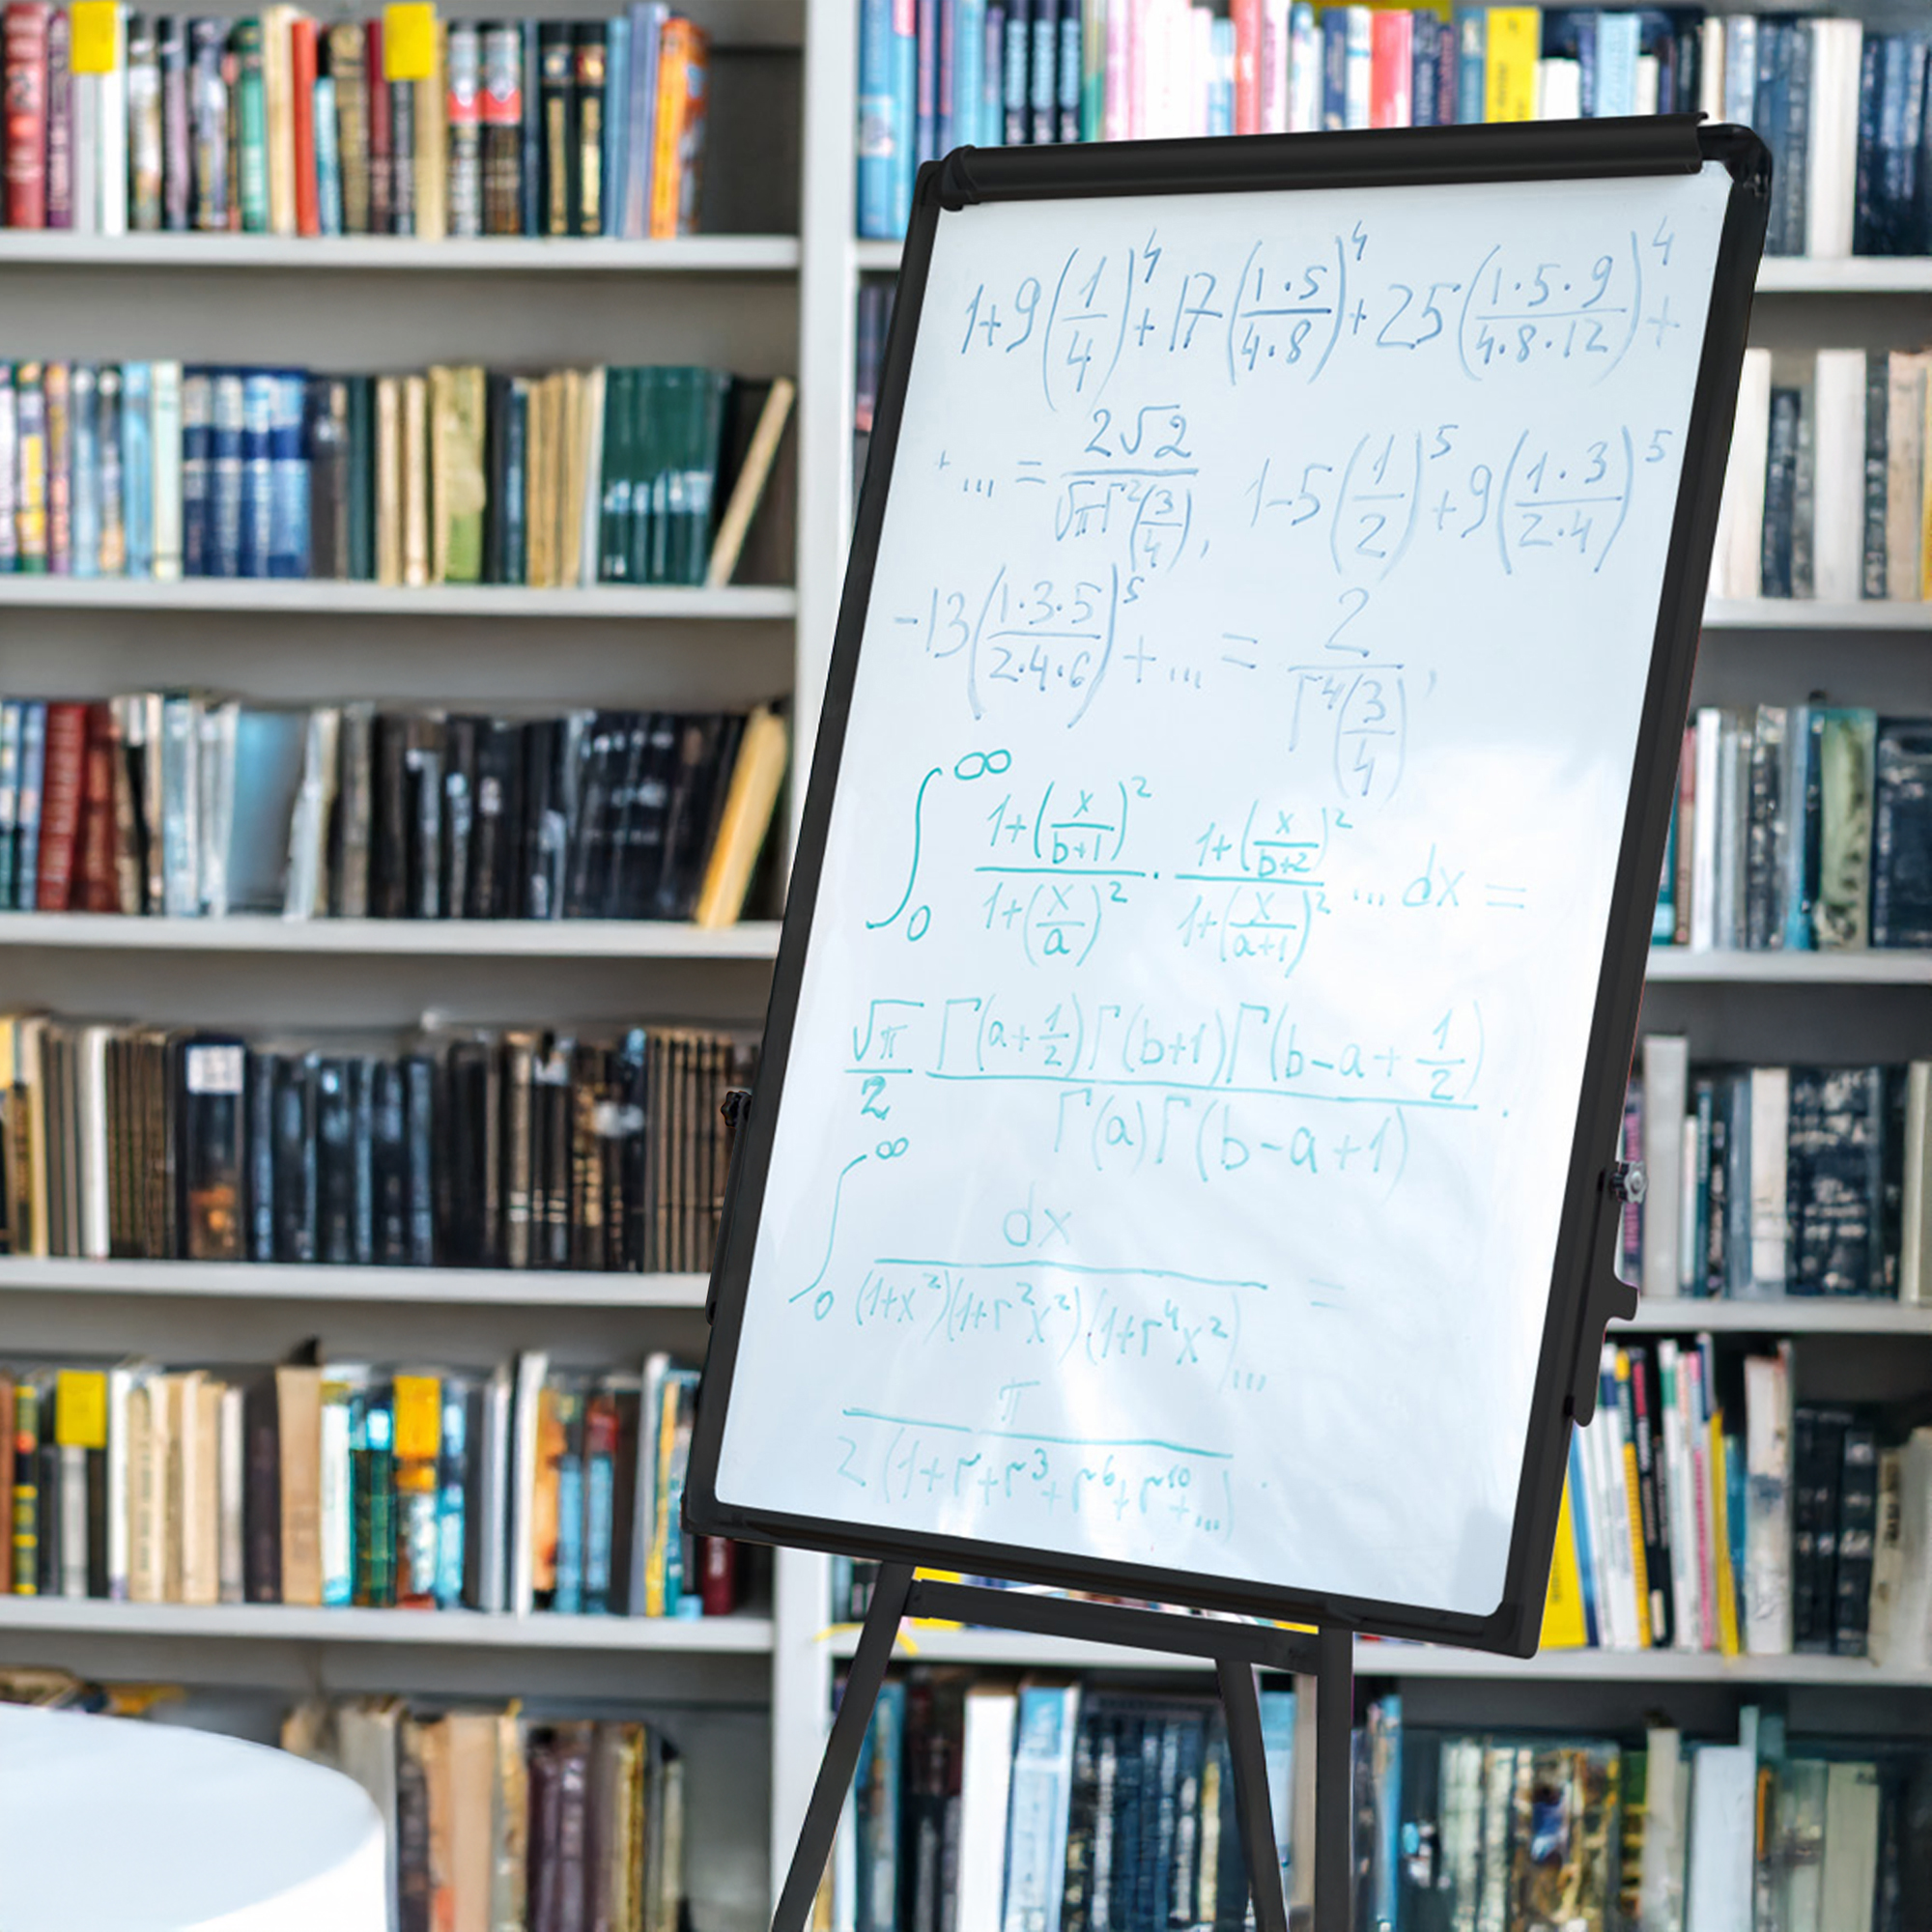 1+9(1/4)^4+17(1·5/4·8)^4+25(1·5·9/4·8·12)^4+
+...=2√2/√πΓ²(3/4), 1-5(1/2)^5+9(1·3/2·4)^5
-13(1·3·5/2·4·6)^5+...=2/Γ⁴(3/4),
∫₀^∞ (1+(x/(b+1))²)/(1+(x/a)²)·(1+(x/(b+2))²)/(1+(x/(a+1))²)...dx=
√π/2 Γ(a+1/2)Γ(b+1)Γ(b-a+1/2)/Γ(a)Γ(b-a+1).
∫₀^∞ dx/(1+x²)(1+r²x²)(1+r⁴x²)...=
π/2(1+r+r³+r⁶+r¹⁰+...).